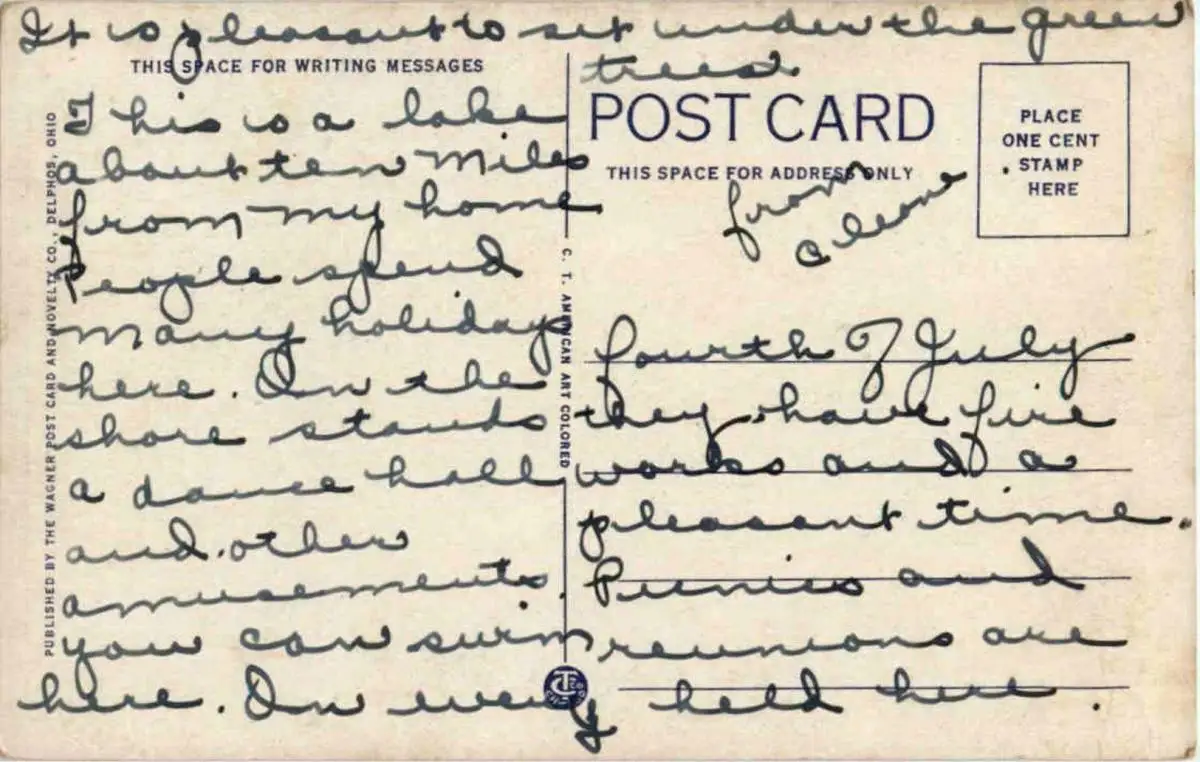 It is pleasant to set under the green
trees.
THIS SPACE FOR WRITING MESSAGES
This is a lake
about ten miles
from my home
People spend
many holidays
here. On the
shore stands
a dance hall
and other
amusements.
you can swim
here. On every
POST CARD
THIS SPACE FOR ADDRESS ONLY
from
Cleone
PLACE
ONE CENT
STAMP
HERE
fourth of July
they have fire
works and a
pleasant time.
Picnics and
reunions are
held here.
PUBLISHED BY THE WAGNER POST CARD AND NOVELTY CO., DELPHOS, OHIO
C. T. AMERICAN ART COLORED